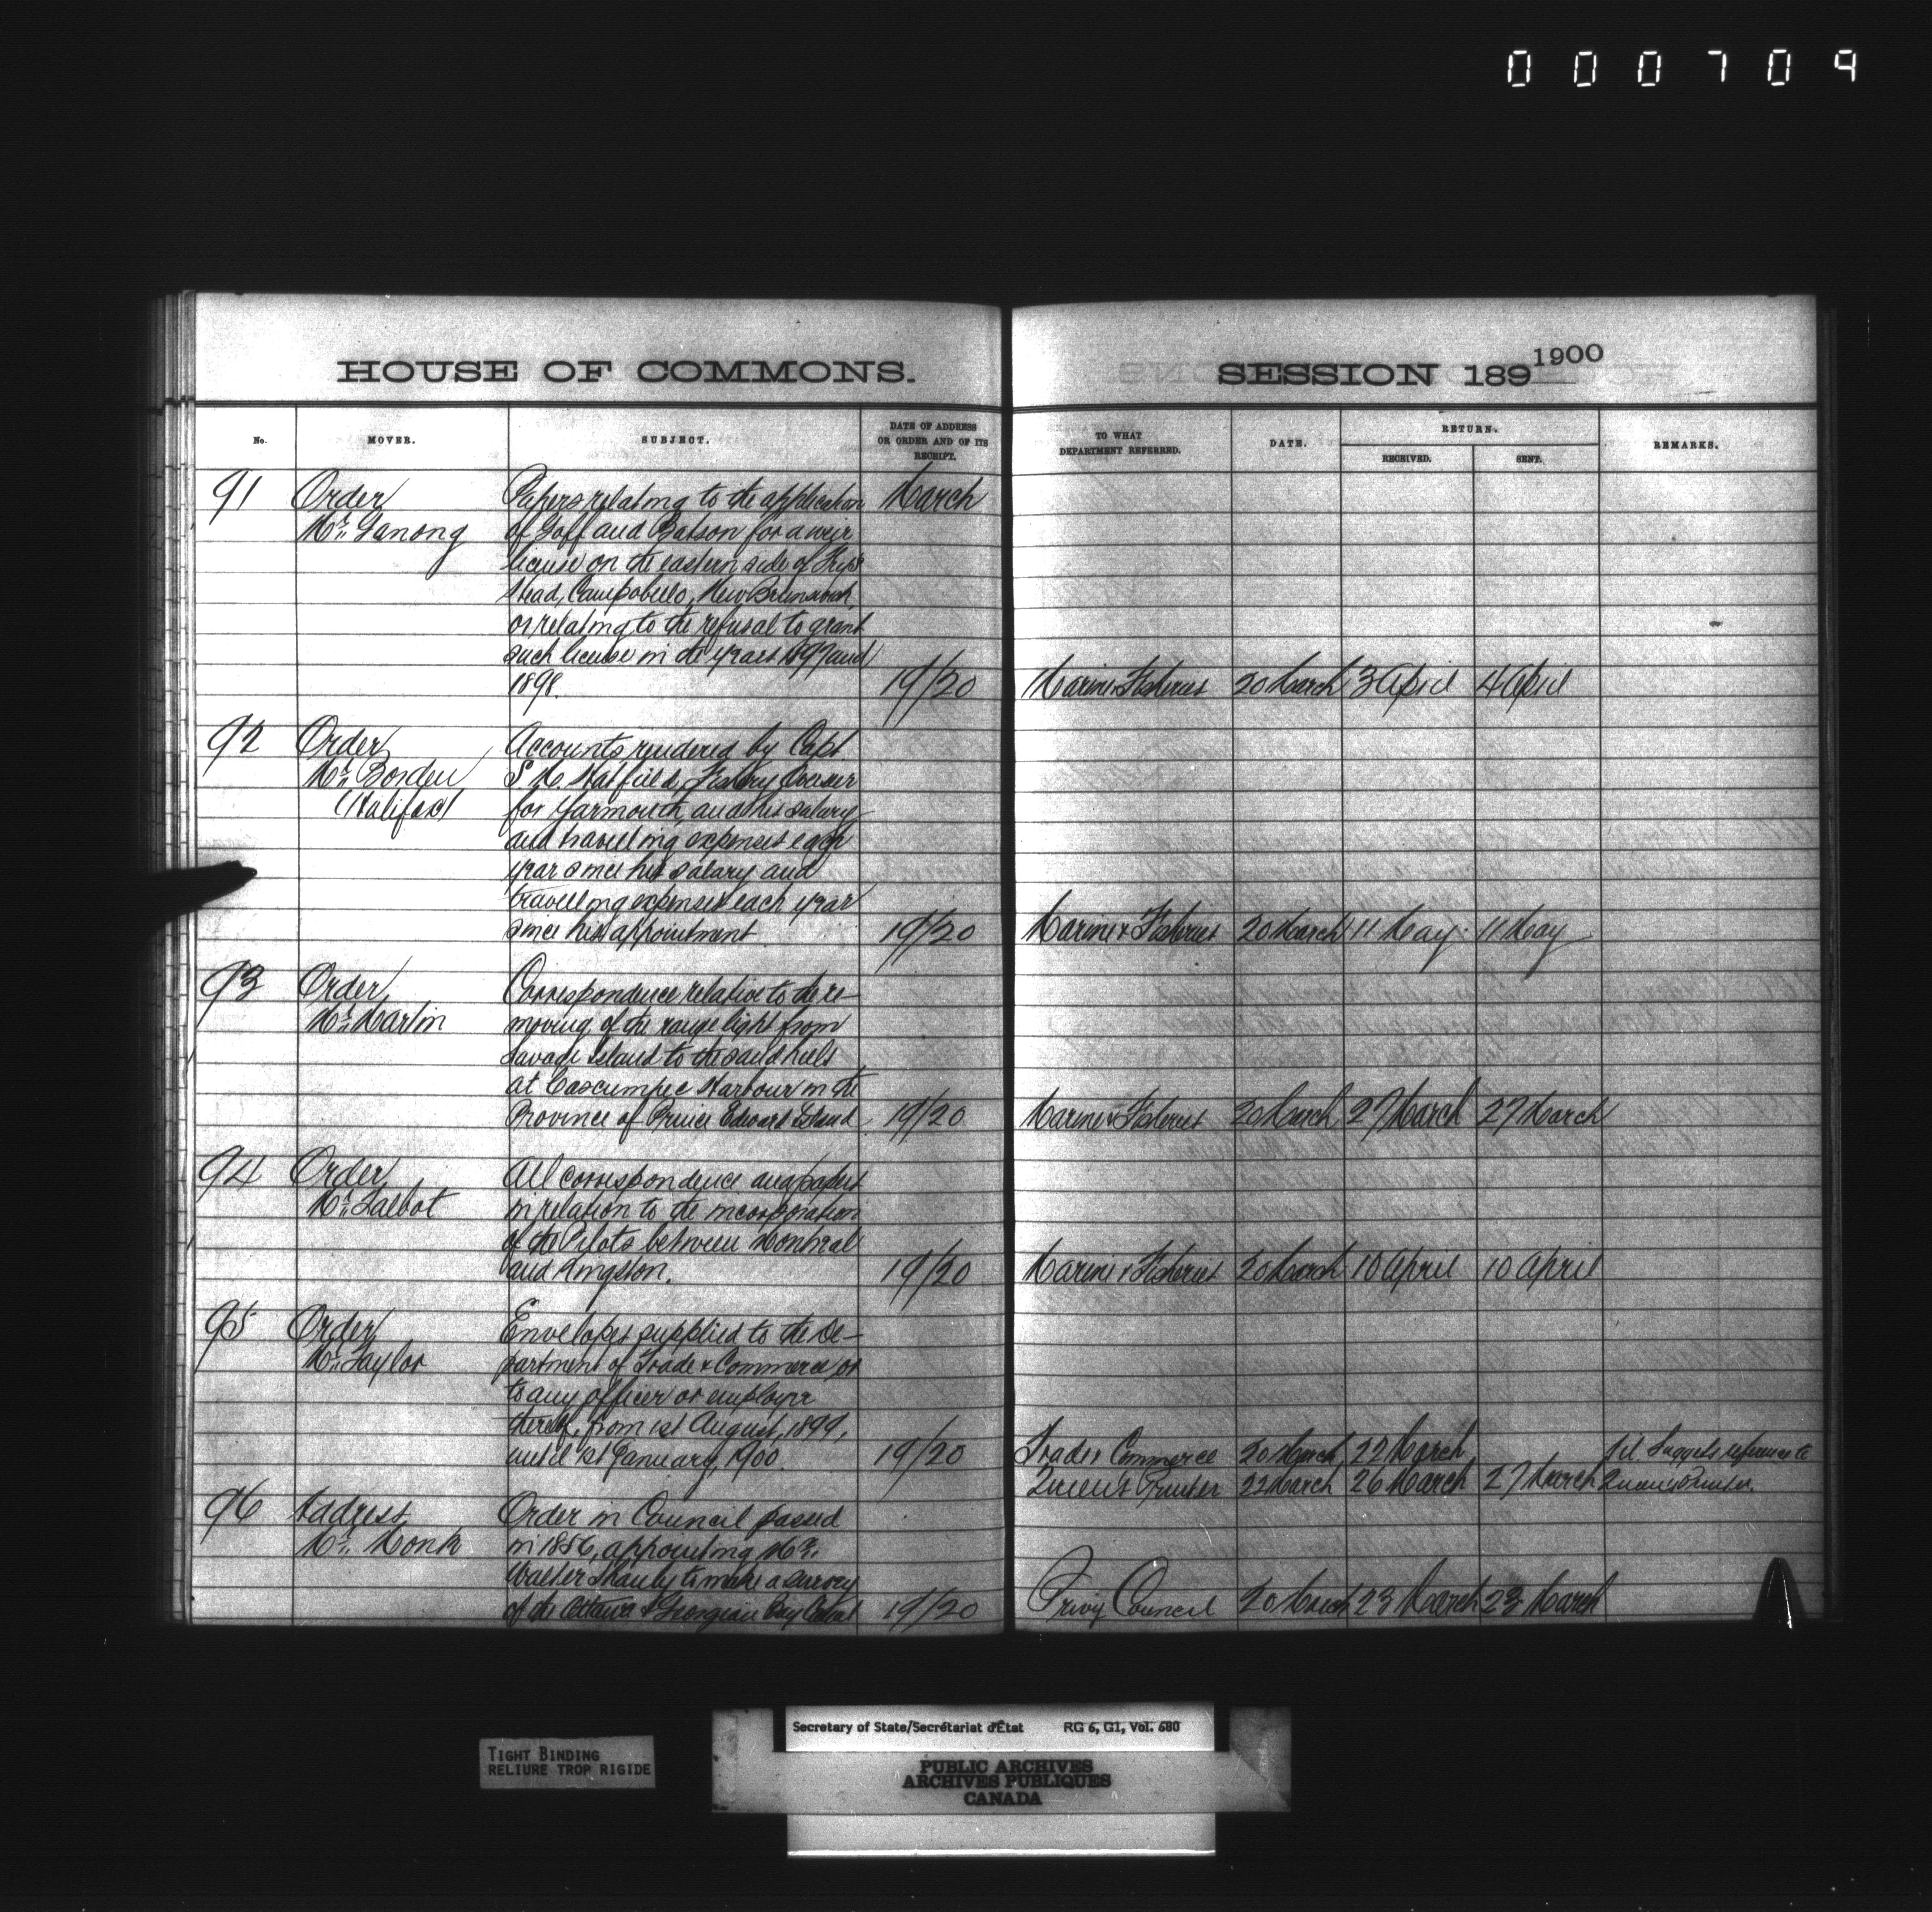 000709
HOUSE OF COMMONS.
SESSION 1891900
No.
MOVER.
SUBJECT.
DATE OF ADDRESS
OR ORDER AND OF ITS
RECEIPT.
TO WHAT
DEPARTMENT REFERRED.
DATE.
RETURN.
RECEIVED.
SENT.
REMARKS.
91 Order Papers relating to the application March
Mr. Ganong of Goff and Batson for a weir
license on the eastern side of
Head, Campobello, New Brunswick,
or relating to the refusal to grant
such license in the years 1897 and
1898. 19/20 Marine & Fisheries 20 March 3 April 4 April
92 Order Accounts rendered by Capt
Mr. Borden S. M. Hatfield, Fishery Overseer
(Halifax) for Yarmouth, and his salary
and travelling expenses each
year since his salary and
travelling expenses each year
since his appointment. 19/20 Marine & Fisheries 20 March 11 May 11 May
93 Order Correspondence relative to the re-
Mr. Martin moving of the range light from
Savage Island to the sand hills
at Cascumpec Harbour in the
Province of Prince Edward Island 19/20 Marine & Fisheries 20 March 27 March 27 March
94 Order All correspondence and papers
Mr. Talbot in relation to the incorporation
of the Pilots between Montreal
and Kingston. 19/20 Marine & Fisheries 20 March 10 April 10 April
95 Order Envelopes supplied to the De-
Mr. Taylor partment of Trade & Commerce or
to any officer or employe
thereof, from 1st August, 1899,
until 1st January, 1900. 19/20 Trade & Commerce 20 March 22 March Suggests reference to
Queen's Printer 22 March 26 March 27 March Queen's Printer.
96 Address Order in Council passed
Mr. Monk in 1856, appointing Mr.
Walter Shanly to make a survey
of the Ottawa & Georgian Bay Canal 19/20 Privy Council 20 March 23 March 23 March
TIGHT BINDING
RELIURE TROP RIGIDE
Secretary of State/Secrétariat d'État RG 6, G1, Vol. 680
PUBLIC ARCHIVES
ARCHIVES PUBLIQUES
CANADA